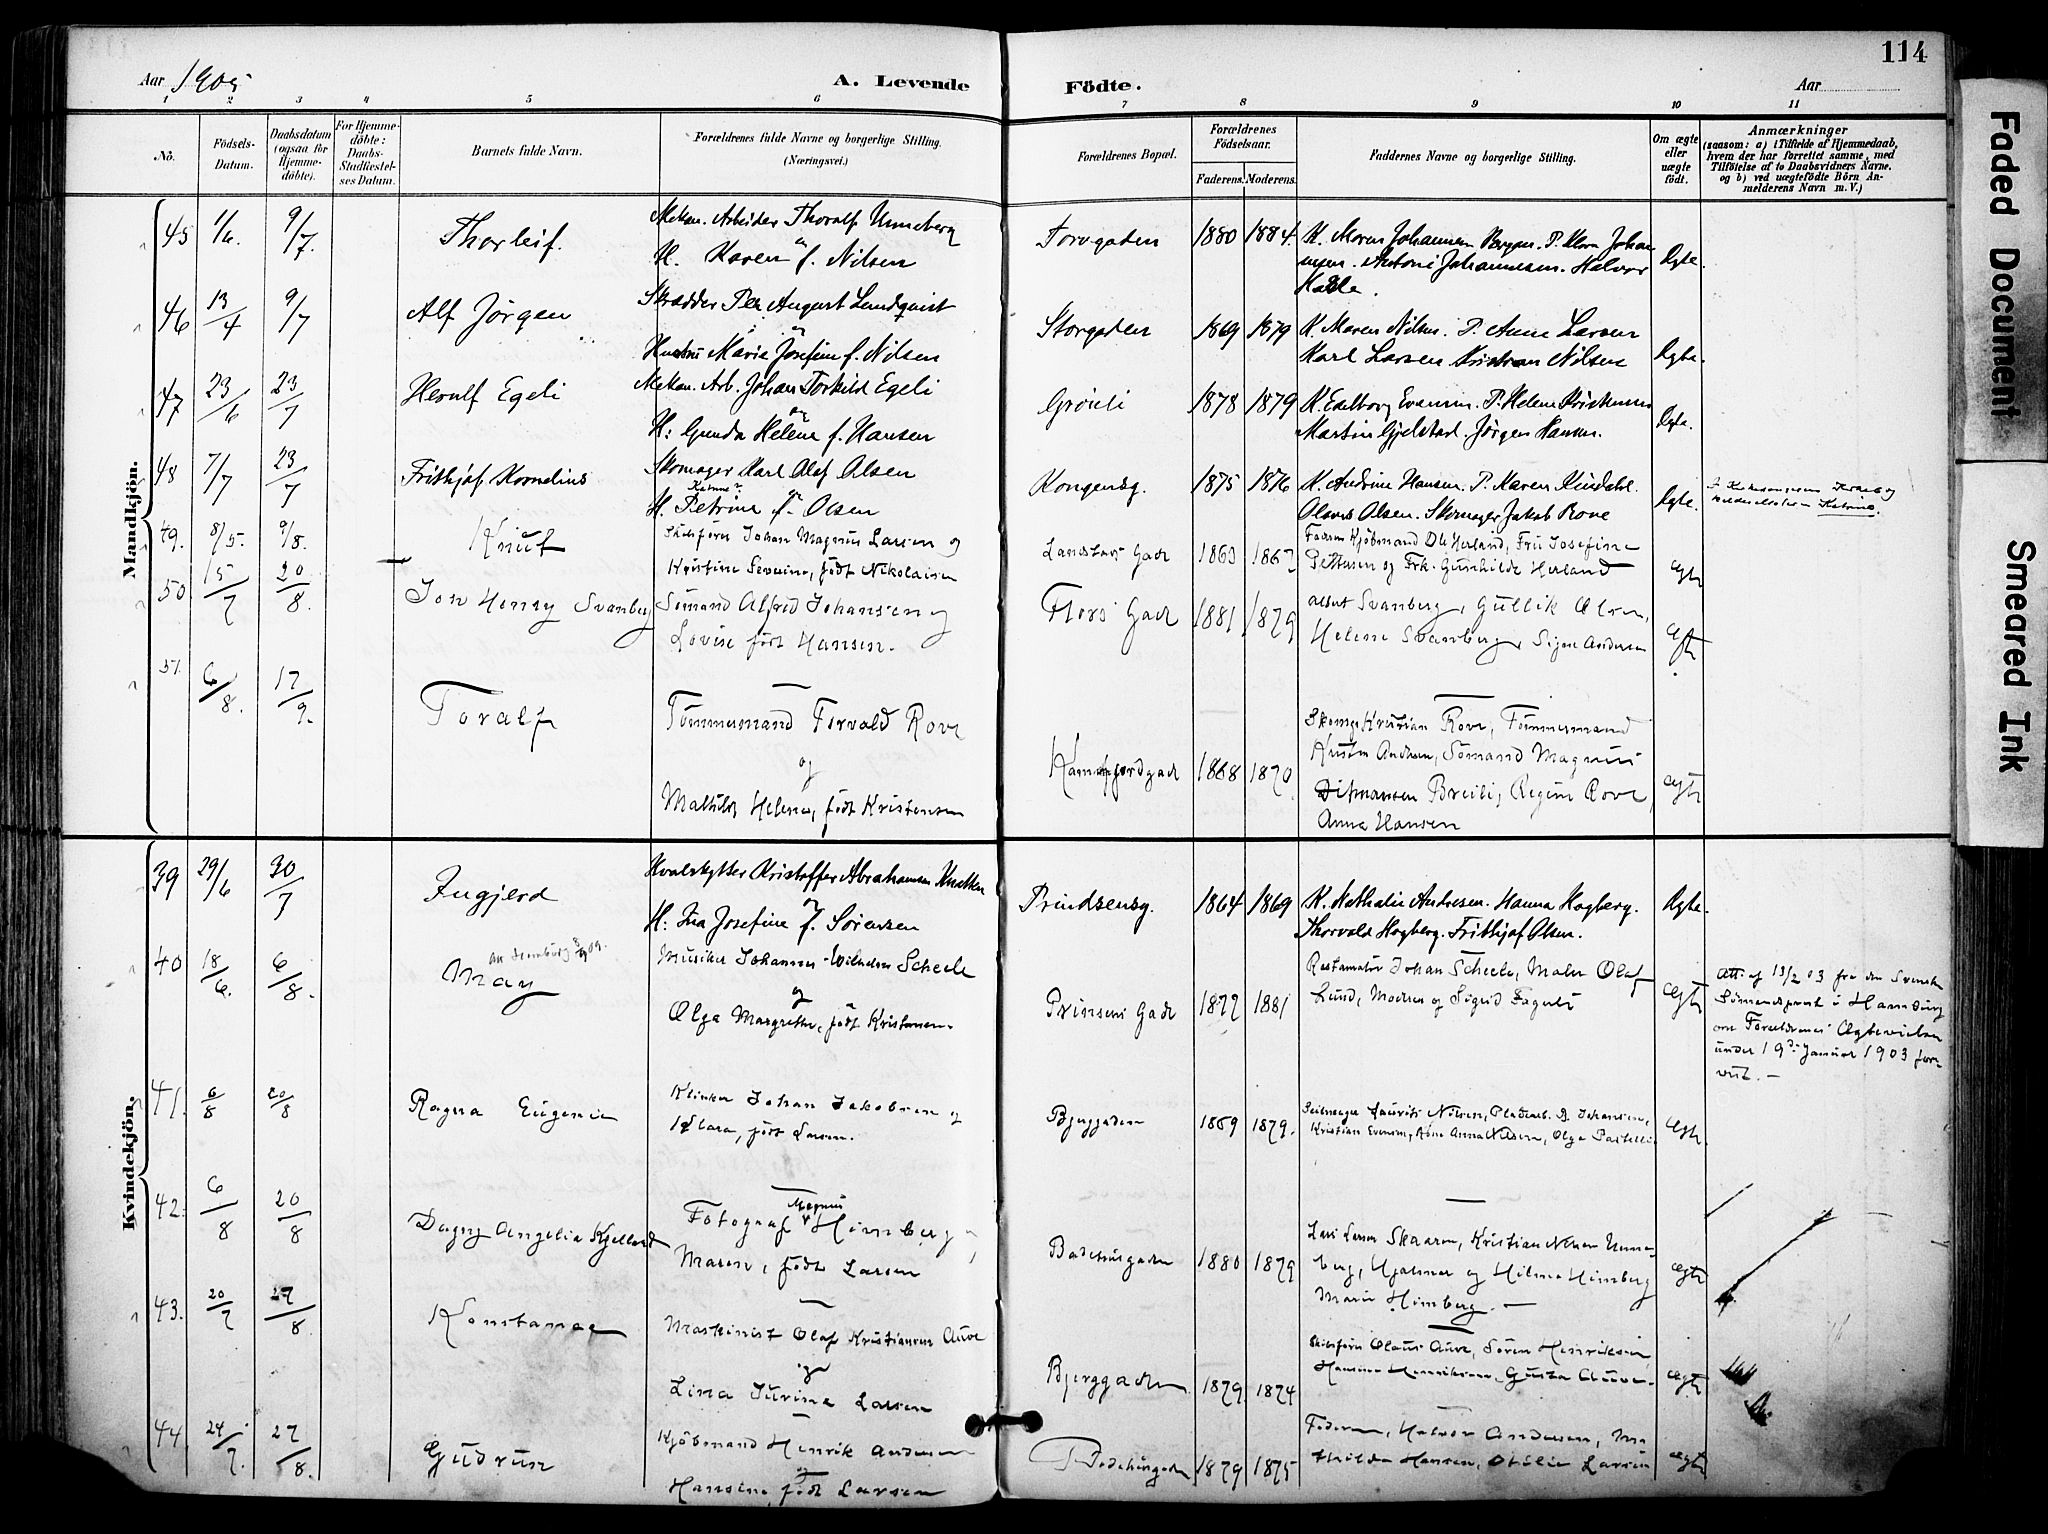 Aar 1905
A. Levende Födte.
114
Aar
1 2 3 4 5 6 7 8 9 10 11
No. Födsels-Datum. Daabsdatum (ogsaa för Hjemmedöbte). For Hjemmedöbte: Daabs-Stadfæstelses Datum. Barnets fulde Navn. Forældrenes fulde Navne og borgerlige Stilling. (Næringsvei.) Forældrenes Bopæl. Forældrenes Födselsaar. Faderens. Moderens. Faddernes Navne og borgerlige Stilling. Om ægte eller uægte födt. Anmærkninger (saasom: a) i Tilfælde af Hjemmedaab, hvem der har forrettet samme, med Tilföielse af to Daabsvidners Navne. og b) ved uægtefödte Börn Anmelderens Navn m. V.)
Mandkjön.
45 1/6. 9/7. Thorleif. Mekan. Arbeider Thoralf Unneberg Torvgaden 1880 1884. K. Maren Johannesen Bergan. P. Klara Johan
og H. Karen f. Nilsen nesen. Antoni Johannesen. Halvor Ægte.
Kadle.
46 13/4 9/7 Alf Jörgen Skrædder Per August Lundquist Storgaden 1869 1879 K. Maren Nilsen. P. Anne Larsen
og Hustru Maria Josefine f. Nilsen Karl Larsen Kristian Nilsen Ægte.
47 23/6 23/7 Herulf Egeli Mekan. Arb. Johan Torkild Egeli Gröneli 1878 1879 K. Edelborg Evensen. P. Helene Kristensen
og H: Gunda Helene f. Hansen Martin Gjelstad. Jörgen Hansen. Ægte.
48 7/7 23/7 Frithjof Kornelius Skomager Karl Olaf Olsen Kongensg. 1875 1876 K. Andrine Hansen. P. Karen Lindahl.
Katrine? og H. Petrine f. Olsen Olaves Olsen. Skomager Jakob Rove Ægte. Katrine.
49. 8/5. 9/8. Knut Skibsförer Johan Magnus Larsen og Landstads Gade 1863 1867 Faderen Kjöbmand Ole Herland, Fru Josefine
Kristine Severine, födt Nikolaisen Pettersen og Frk. Gunhilde Herland ægte
50 15/7 20/8. Jon Henry Svanberg Sömand Alfred Johansen og Flors Gade 1881 1879 Albert Svanberg, Gullik Olsen,
Lovise födt Hansen. Helene Svanberg, Signe Andersen ægte.
51. 6/8. 17/9. Toralf Tömmermand Torvald Rove Kamfjordgade 1868 1870 Skomager Kristian Rove, Tömmermand
og Kristen Andersen, Sömand Magnus
Mathilde Helene, födt Kristensen Ditmansen Breili, Regine Rove, ægte
Anna Hansen
Kvindekjön.
39 29/6 30/7 Ingjerd Hvalskytter Kristoffer Abrahamsen Knatten Prindsensg. 1864 1869 K. Nathalie Andresen. Hanna Hogberg. Ægte.
og H: Ina Josefine f. Sörensen Thorvald Hogberg. Frithjof Olsen.
40 18/6. 6/8. May Musiker Johannes Wilhelm Scheele Prinsens Gade 1877 1881 Restauratör Johan Scheele, Maler Olaf
og Olga Margrethe, födt Kristensen. Lund, Moderen og Sigrid Fagerli ægte
Att. af 13/2 03 fra den Svenske
Sömandsprest i Hamburg
om Forældrenes Ægtevielse
under 19de Januar 1903 fore-
vist. –
41. 6/8 20/8 Ragna Eugenie Klinker Johan Jakobsen og Bjerggaden 1869 1879. Seilmager Laurits Nilsen, Pladearb. B. Johansen,
Klara, födt Larsen. Kristian Evensen, Anna Nilsen, Olga ægte.
42. 6/8 20/8 Dagny Angelia Kjellaug Fotograf Magnus Himberg Badehusgaden 1880 1879 Lars Larsen Skaaren, Kristian Nilsen Unne-
Maren, födt Larsen berg, Hjalmar og Hilma Himberg ægte
Marie Himberg. –
43. 20/7 27/8 Konstance Maskinist Olaf Kristiansen Auve Bjerggaden 1879. 1874 Skibsförer Olaus Auve, Sören Henriksen,
og Lina Jurine Larsen Hansine Henriksen, Gusta Auve. ægte
44. 24/7. 27/8. Gudrun Kjöbmand Henrik Andersen Badehusgaden 1879 1875 Faderen, Halvor Andersen, Ma-
og Hansine, födt Larsen thilde Hansen, Otilie Larsen ægte
Faded Document
Smeared Ink